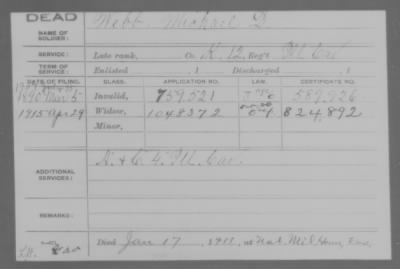 DEAD
NAME OF SOLDIER: Webb, Michael D.
SERVICE: Late rank, Co. K, 12, Reg't Ill Cav
TERM OF SERVICE: Enlisted , 1 Discharged , 1
DATE OF FILING. CLASS. APPLICATION NO. LAW. CERTIFICATE NO.
1890 Mar 5 Invalid, 759,521 589,926
1915 Apr 29 Widow, 1048372 824,892
Minor,
ADDITIONAL SERVICES: A. & C. 4, Ill. Cav.
REMARKS:
Died Jan 17 1911, at Nat. Mil. Home